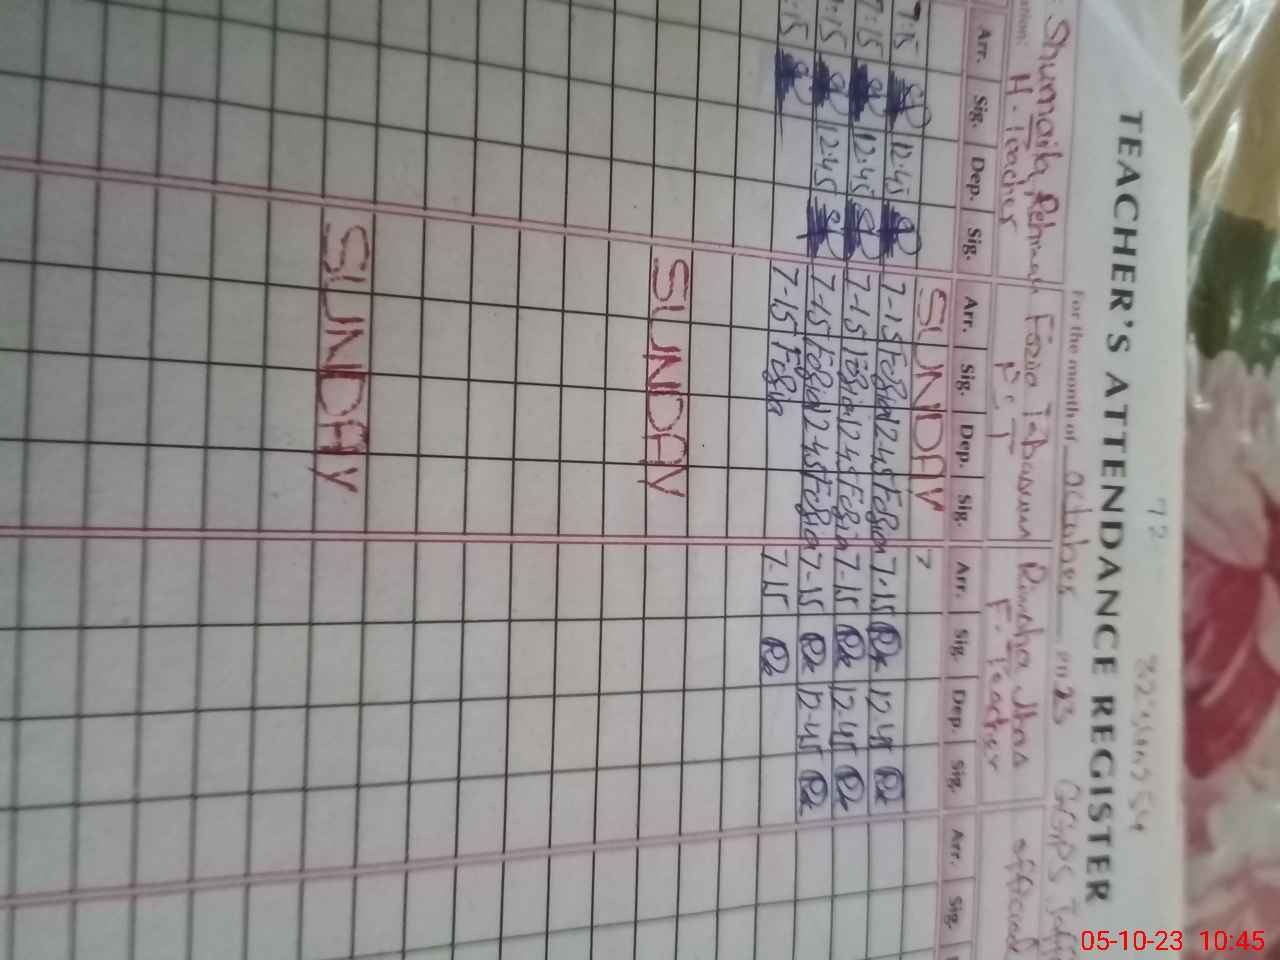 72
TEACHER'S ATTENDANCE REGISTER
For the month of October 2023
Shumaila Rehman Fozia Tabasum
H. Teacher P.S.T F. Teacher
Arr. Sig. Dep. Sig. Arr. Sig. Dep. Sig. Arr. Sig. Dep. Sig. Arr. Sig.
SUNDAY
7:15 12:45 7-15 Fozia 12-45 Fozia 7-15 Rk 12-45 Rk
7:15 12:45 7-15 Fozia 12-45 Fozia 7-15 Rk 12-45 Rk
7:15 12:45 7-15 Fozia 12-45 Fozia 7-15 Rk 12-45 Rk
:15 7-15 Fozia 7-15 Rk
SUNDAY
SUNDAY
05-10-23 10:45